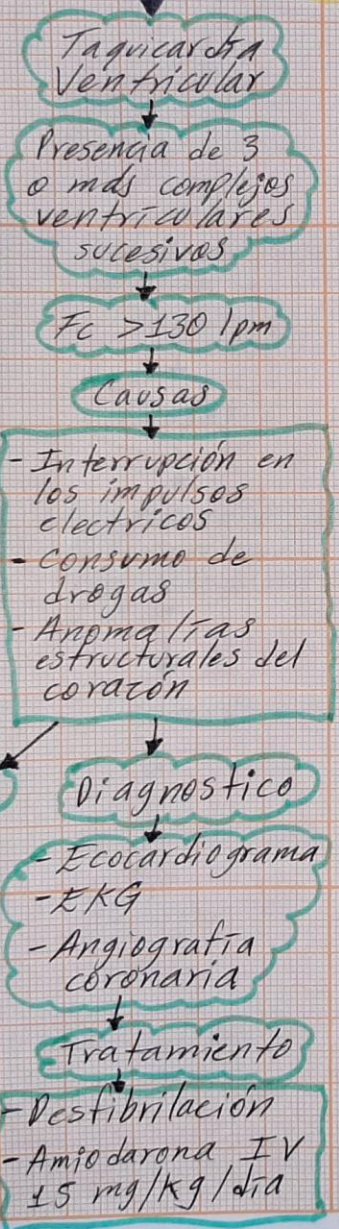 Taquicardia
Ventricular
Presencia de 3
o más complejos
ventriculares
sucesivos
Fc >130 lpm
Causas
- Interrupción en
los impulsos
electricos
- Consumo de
drogas
- Anomalías
estructurales del
corazón
Diagnostico
- Ecocardiograma
- EKG
- Angiografía
coronaria
Tratamiento
- Desfibrilación
- Amiodarona IV
15 mg/kg/día